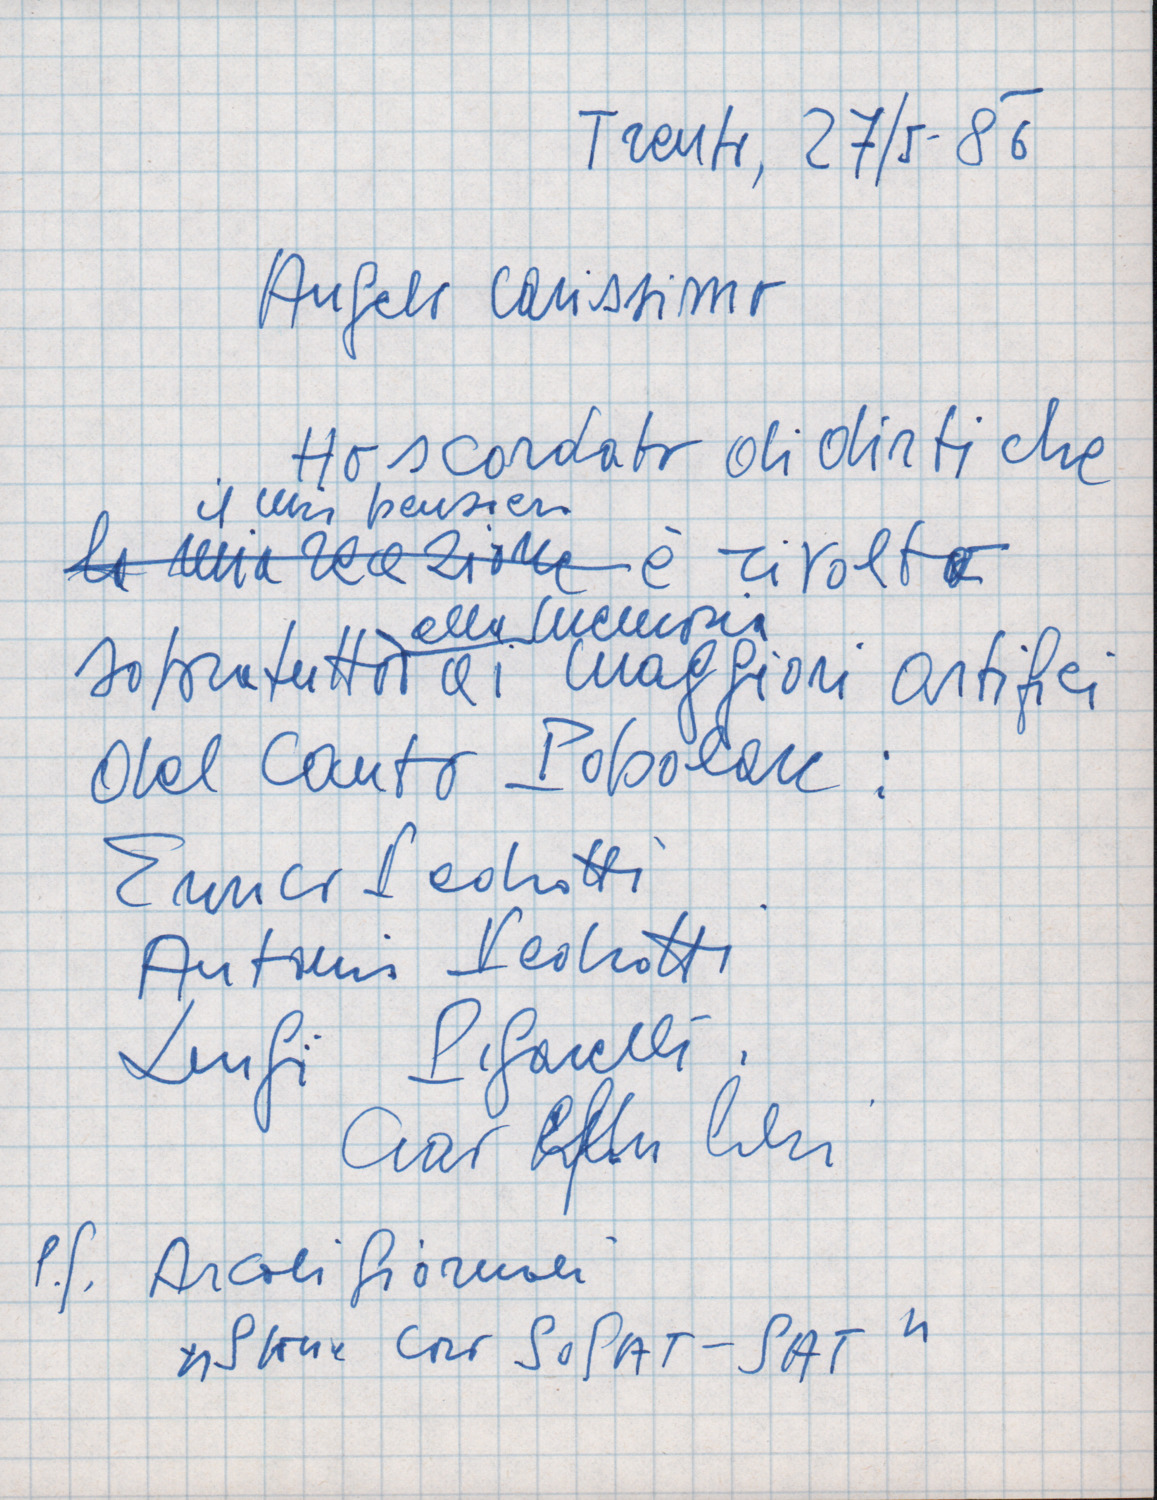 Trento, 27/5-86
Angelo carissimo
Ho scordato di dirti che
il mio pensiero
la mia reazione è rivolto
alla memoria
sopratutto ai maggiori artifici
del Canto Popolare:
Enrico Pedrotti
Antonio Pedrotti
Luigi Pigarelli.
Ciao
P.S. giornali
"Storia cori SOSAT-SAT"